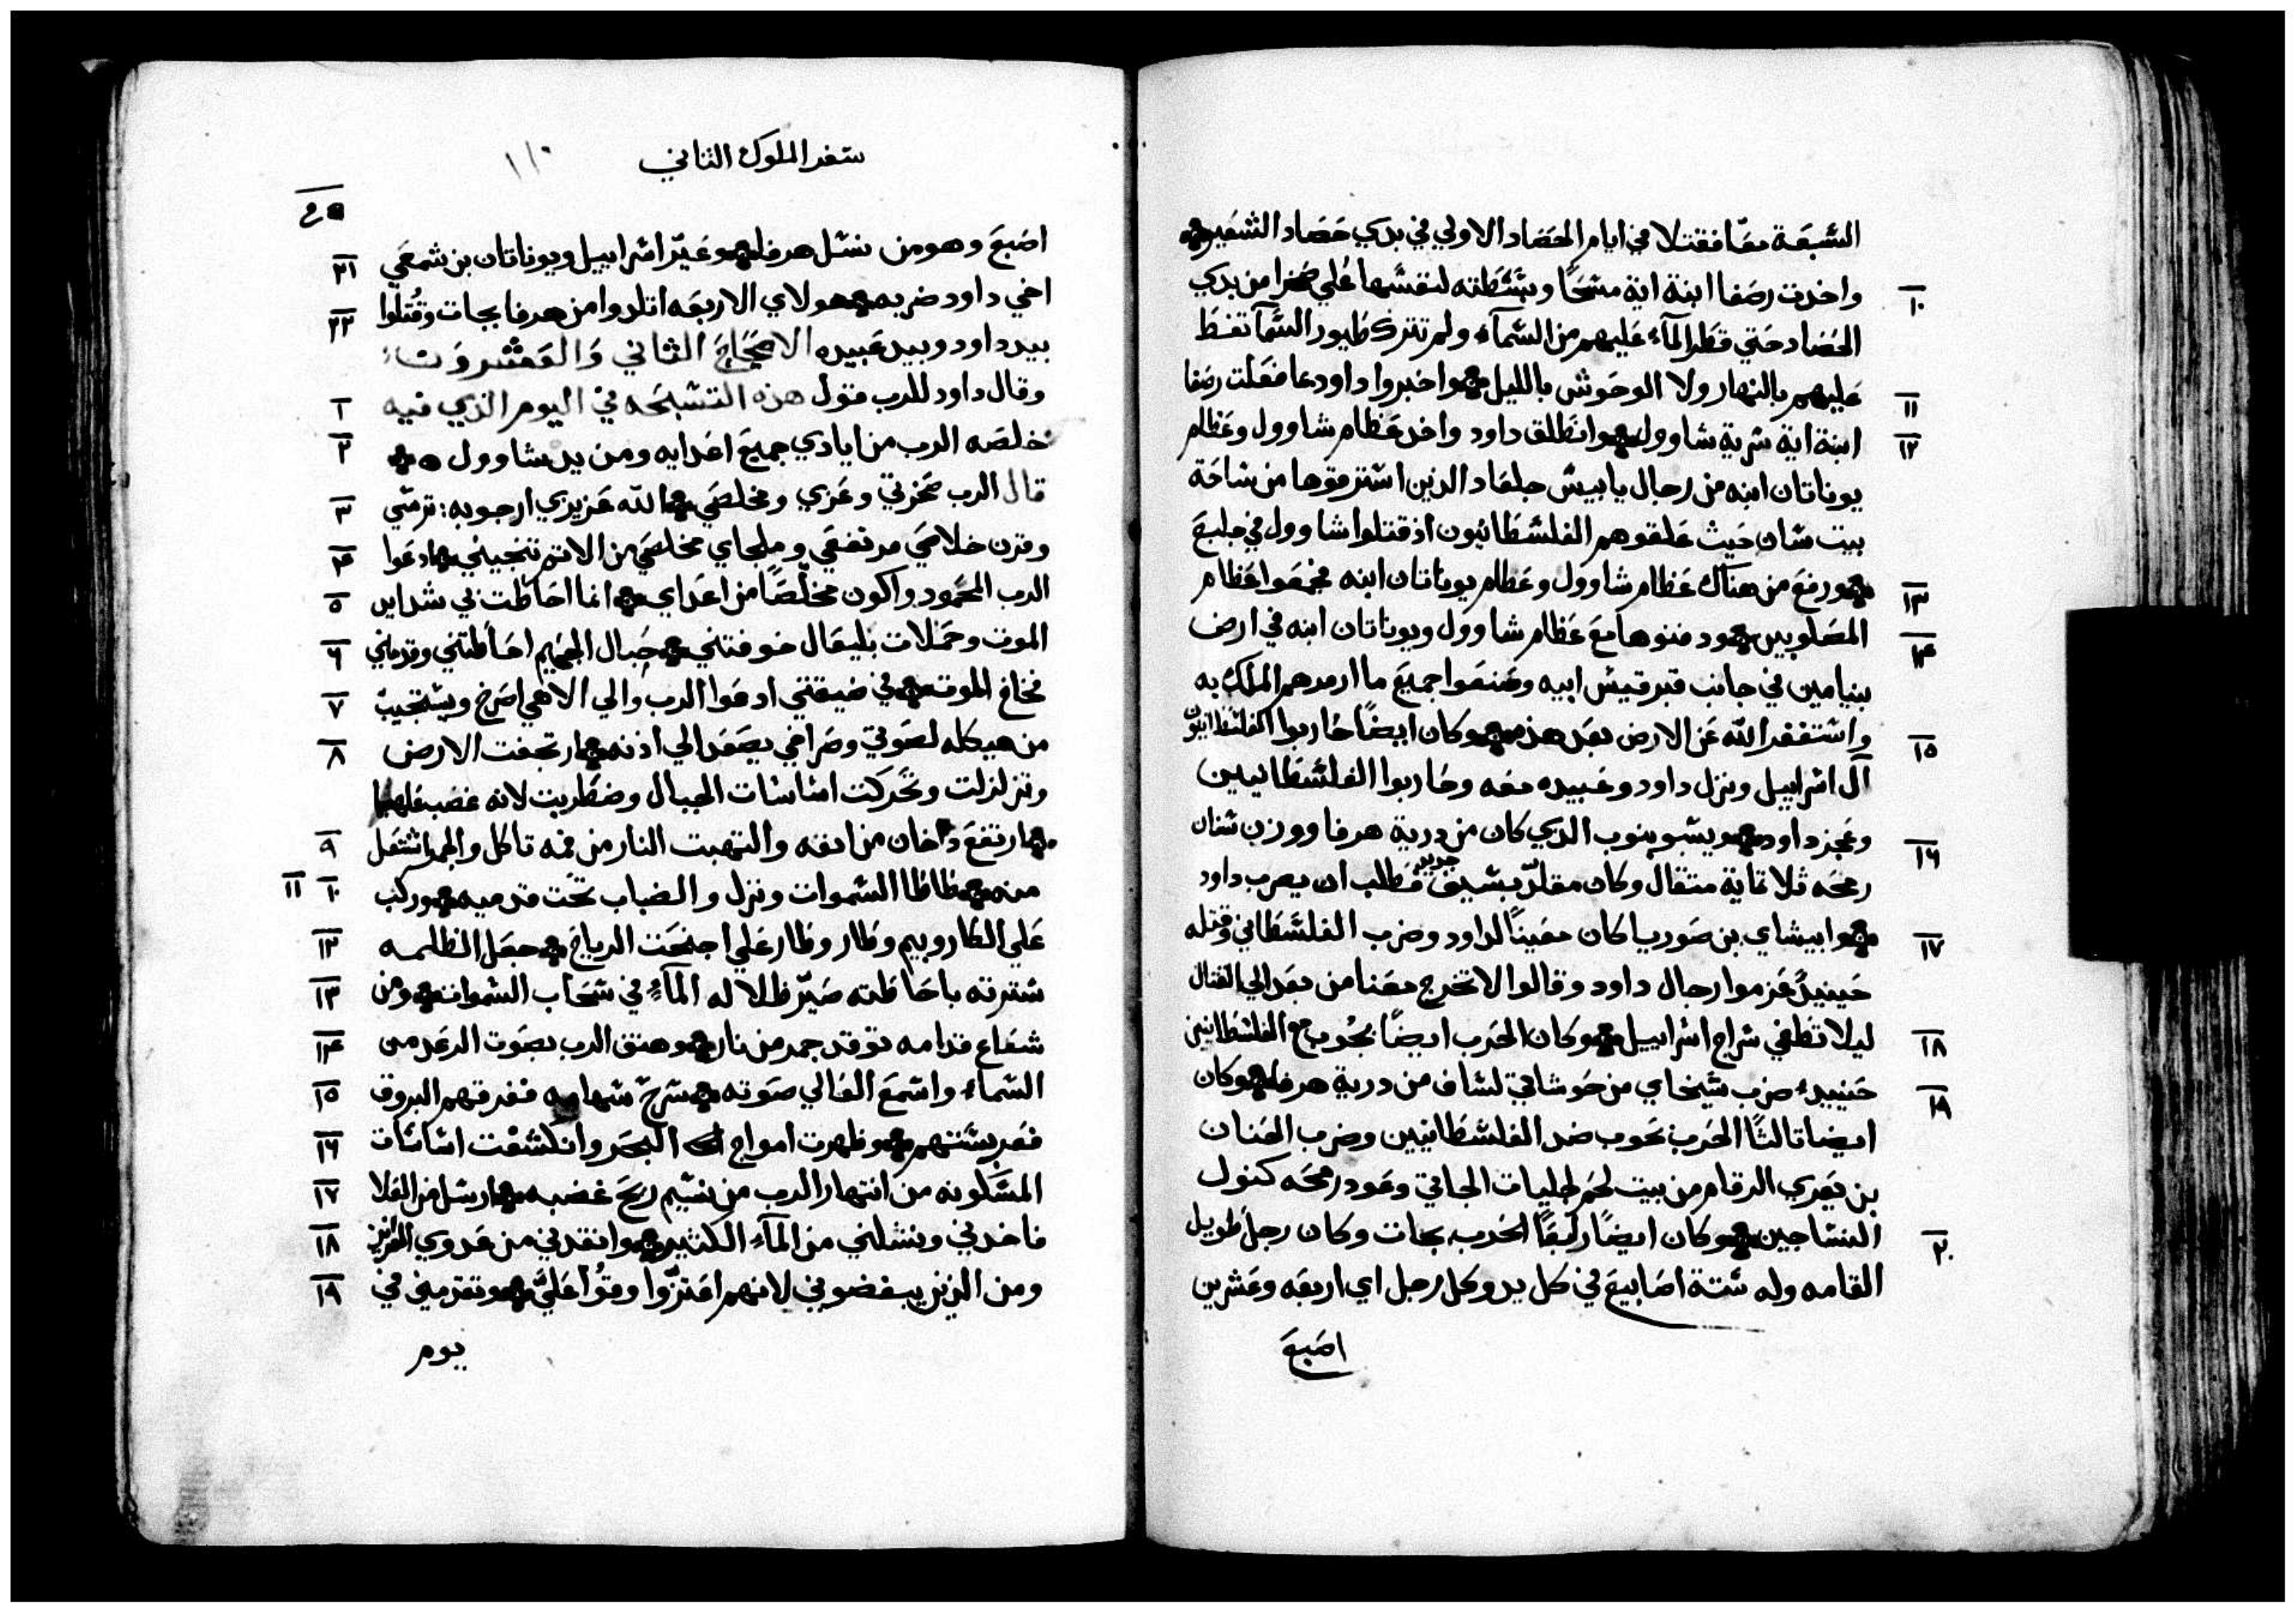 السبعة معًا فقتلا في ايام الحصاد الاولي في بدي حصاد الشعير
١٠ واخدت رصفا ابنة اية مسحًا وبسطته لنفسها علي صخرا من بدي
الحصاد حتي قطر المآء عليهم من السمآء ولم تترك طيور السمآ تفسط
عليهم بالنهار ولا الوحوش بالليل واخبروا داود عا فعلت رصفا ١١
ابنة اية سرية شاوول وانطلق داود واخد عظام شاوول وعظام ١٢
يوناتان ابنه من رجال يابيس جلعاد الدين استرقوها من ساحة
بيت سان حيث علقوهم الفلسطانيون اذ قتلوا شاوول في جلبع
ورفع من هناك عظام شاوول وعظام يوناتان ابنه فجمعوا عظام ١٣
المصلوبين ودفنوها مع عظام شاوول ويوناتان ابنه في ارض ١٤
بنيامين في جانب قبر قيس ابيه وصنعوا جميع ما ارمدهم الملك به
واستغفر الله عن الارض بعد هذه وكان ايضًا حاربوا الفلسطانيون ١٥
آل اسراييل ونزل داود وعبيده معه وحاربوا الفلسطانيين
وعجز داود ويسبوبنوب الدي كان من درية هرفا ووزن سنان ١٦
رمحه تلاتماية متقال وكان مقلدّ بسيف جديد فطلب ان يضرب داود
وابيشاي بن صوريا كان معينًا لداود وضرب الفلسطاني وقتله ١٧
حينيدٍ عزموا رجال داود وقالوا لا تخرج معنا من بعد الي القتال
ليلا تطفي سراج اسراييل وكان الحرب ايضًا بجوب مع الفلسطانيين ١٨
حينيدء ضرب سيخاي من حوشاتي لساف من درية هرفا وكان ١٩
ايضا تالتًا الحرب بحوب ضد الفلسطانيين وضرب الحنان
بن يعري الرقام من بيت لحم لجليات الجاتي وعود رمحه كنول
النساجين وكان ايضًا رابعًا الحرب بجات وكان رجل طويل ٢٠
القامه وله ستة اصابيع في كل يد وكل رجل اي اربعه وعشرين
اصبع
سفر الملوك التاني ١١٠
اصبع وهو من نسل هرفا وعيّر اسراييل ويوناتان بن شمعي ٢١
اخي داود ضربه هولاي الاربعه اتلدوا من هرفا بجات وقُتلوا ٢٢
بيد داود وبيد عبيده الاصحاح الثاني والعشروت
وقال داود للرب قول هذه التسبحه في اليوم الذي فيه ١
خلصه الرب من ايادي جميع اعدايه ومن يد شاوول ٢
قال الرب صخرتي وعزي ومخلصي الله عزيزي ارجوبه: ترسي ٣
وقرن خلاصي مرتفعي وملجاي مخلصي من الاتم تنجيني ادعوا ٤
الرب المحمود واكون مخلّصًا من اعداي انما احاطت بي شدايد ٥
الموت وحملات بليعال خوفتني حبال الجهيم احاطتني وقدمتني ٦
فخاخ الموت في ضيقتي ادعوا الرب والي الاهي اصرخ ويستجيب ٧
من هيكله لصوتي وصراخي يصعد الي اذنه ارتجفت الارض ٨
وتزلزلت وتحركت اساسات الجبال وضطربت لانه غضب عليها
ارتفع داخان من انفه والتهبت النار من فمه تاكل والجمر اشتعل ٩
منه طاطا السموات ونزل والضباب تحت قدميه وركب ١٠ ١١
علي الكاروبيم وطار وطار علي اجنحت الرياح جعل الظلمه ١٢
سترته باحاطته صيّر ظلاله المآءِ في سحاب السموات ومن ١٣
شعاع قدامه توقد جمر من نار وهتف الرب بصوت الرعد من ١٤
السماء واسمع العالي صوته سرح سهامه ففرقهم البروق ١٥
فعربستهم وظهرت امواج البحر وانكشفت اساسات ١٦
المسكونه من انتهار الرب من نسيم ريح غضبه ارسل من العلا ١٧
فاخدني ونشلني من المآءِ الكثير وانقدني من عدوي العزيز ١٨
ومن الذين يبغضوني لانهم اعتزّوا وقوُا عليَّ وتقدمني في ١٩
يوم